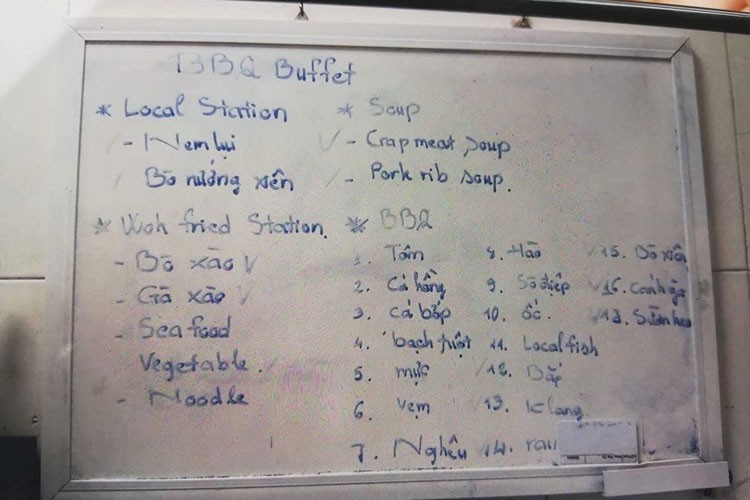 BBQ Buffet
* Local Station
- Nem lụi
Bò nướng xiên
* Wok fried Station.
- Bò xào V
- Gà xào V
- Seafood
Vegetable.
- Noodle
* Soup
- Crap meat soup
- Pork rib soup.
* BBQ
1. Tôm
2. Cá hồng
3. cá bớp
4. bạch tuột
5. mực
6. Vẹm
7. Nghêu
8. Hào
9. Sò điệp
10. ốc.
11. Local fish
12. Bắp
13. K lang
14.
15. Bò xiên
16. cánh gà
13. Sườn heo